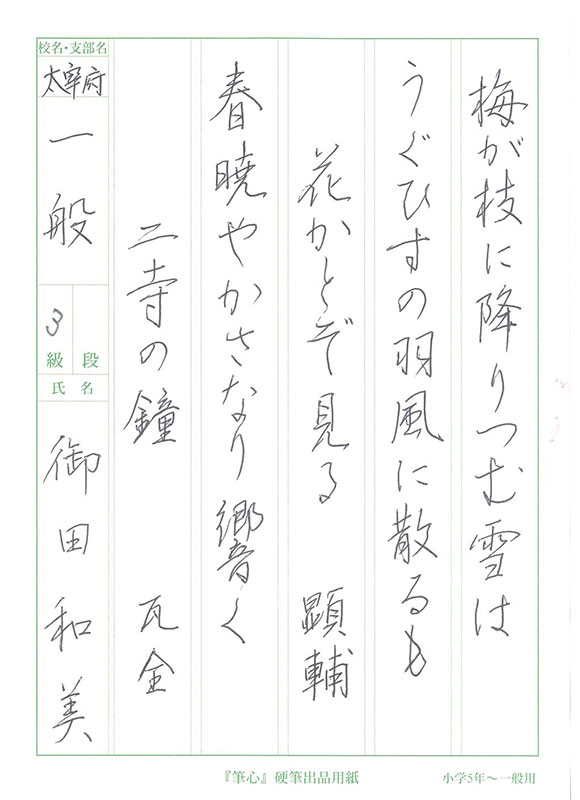 梅が枝に降りつむ雪は
うぐひすの羽風に散るも
花かとぞ見る 顕輔
春暁やかさなり響く
二寺の鐘 瓦全
校名・支部名
太宰府
一般
3
級 段
氏名
御田和美
『筆心』硬筆出品用紙
小学5年～一般用